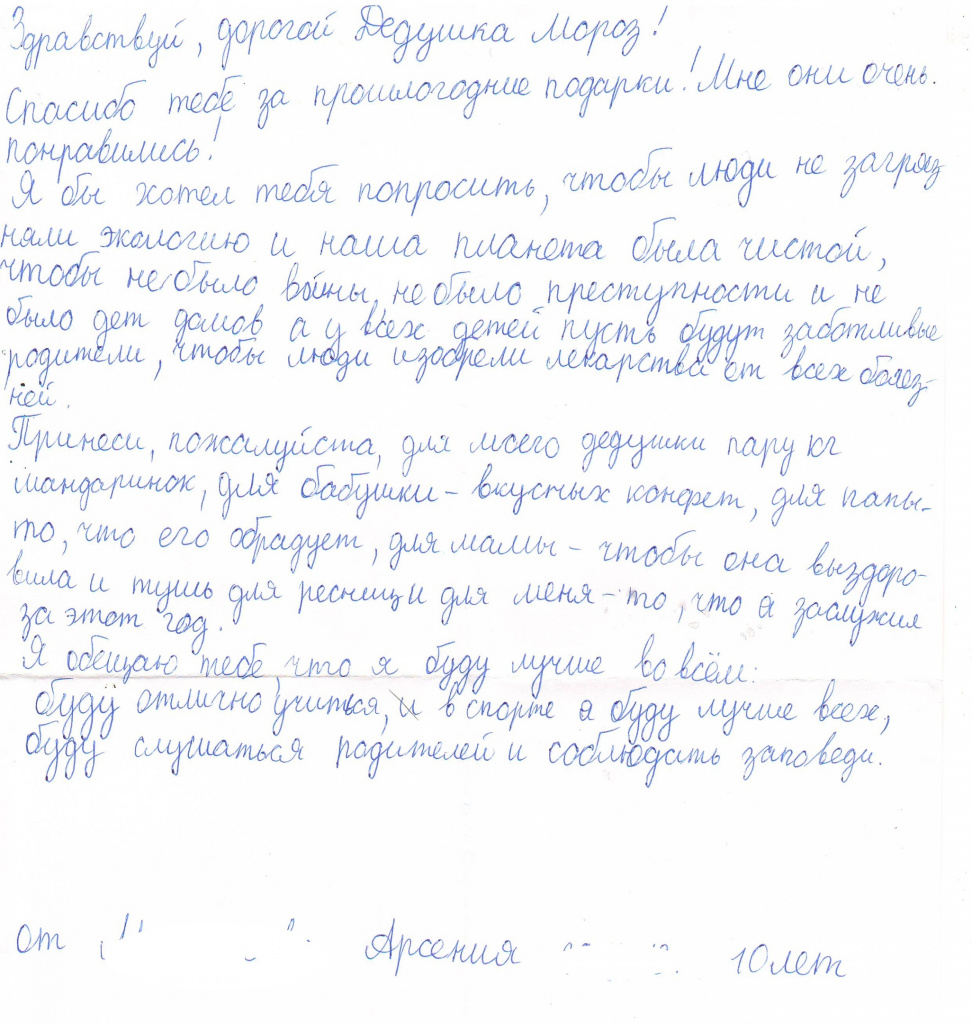 Здравствуй, дорогой Дедушка Мороз!
Спасибо тебе за прошлогодние подарки! Мне они очень.
понравились!
Я бы хотел тебя попросить, чтобы люди не загряз
няли экологию и наша планета была чистой,
чтобы не было войны, не было преступности и не
было дет домов а у всех детей пусть будут заботливые
родители, чтобы люди изобрели лекарства от всех болез-
ней.
Принеси, пожалуйста, для моего дедушки пару кг
мандаринок, для бабушки - вкусных конфет, для папы-
то, что его обрадует, для мамы - чтобы она выздоро-
вила и тушь для ресниц и для меня - то, что я заслужил
за этот год.
Я обещаю тебе, что я буду лучше во всём:
буду отлично учиться, и в спорте я буду лучше всех,
буду слушаться родителей и соблюдать заповеди.
от Арсения 10 лет